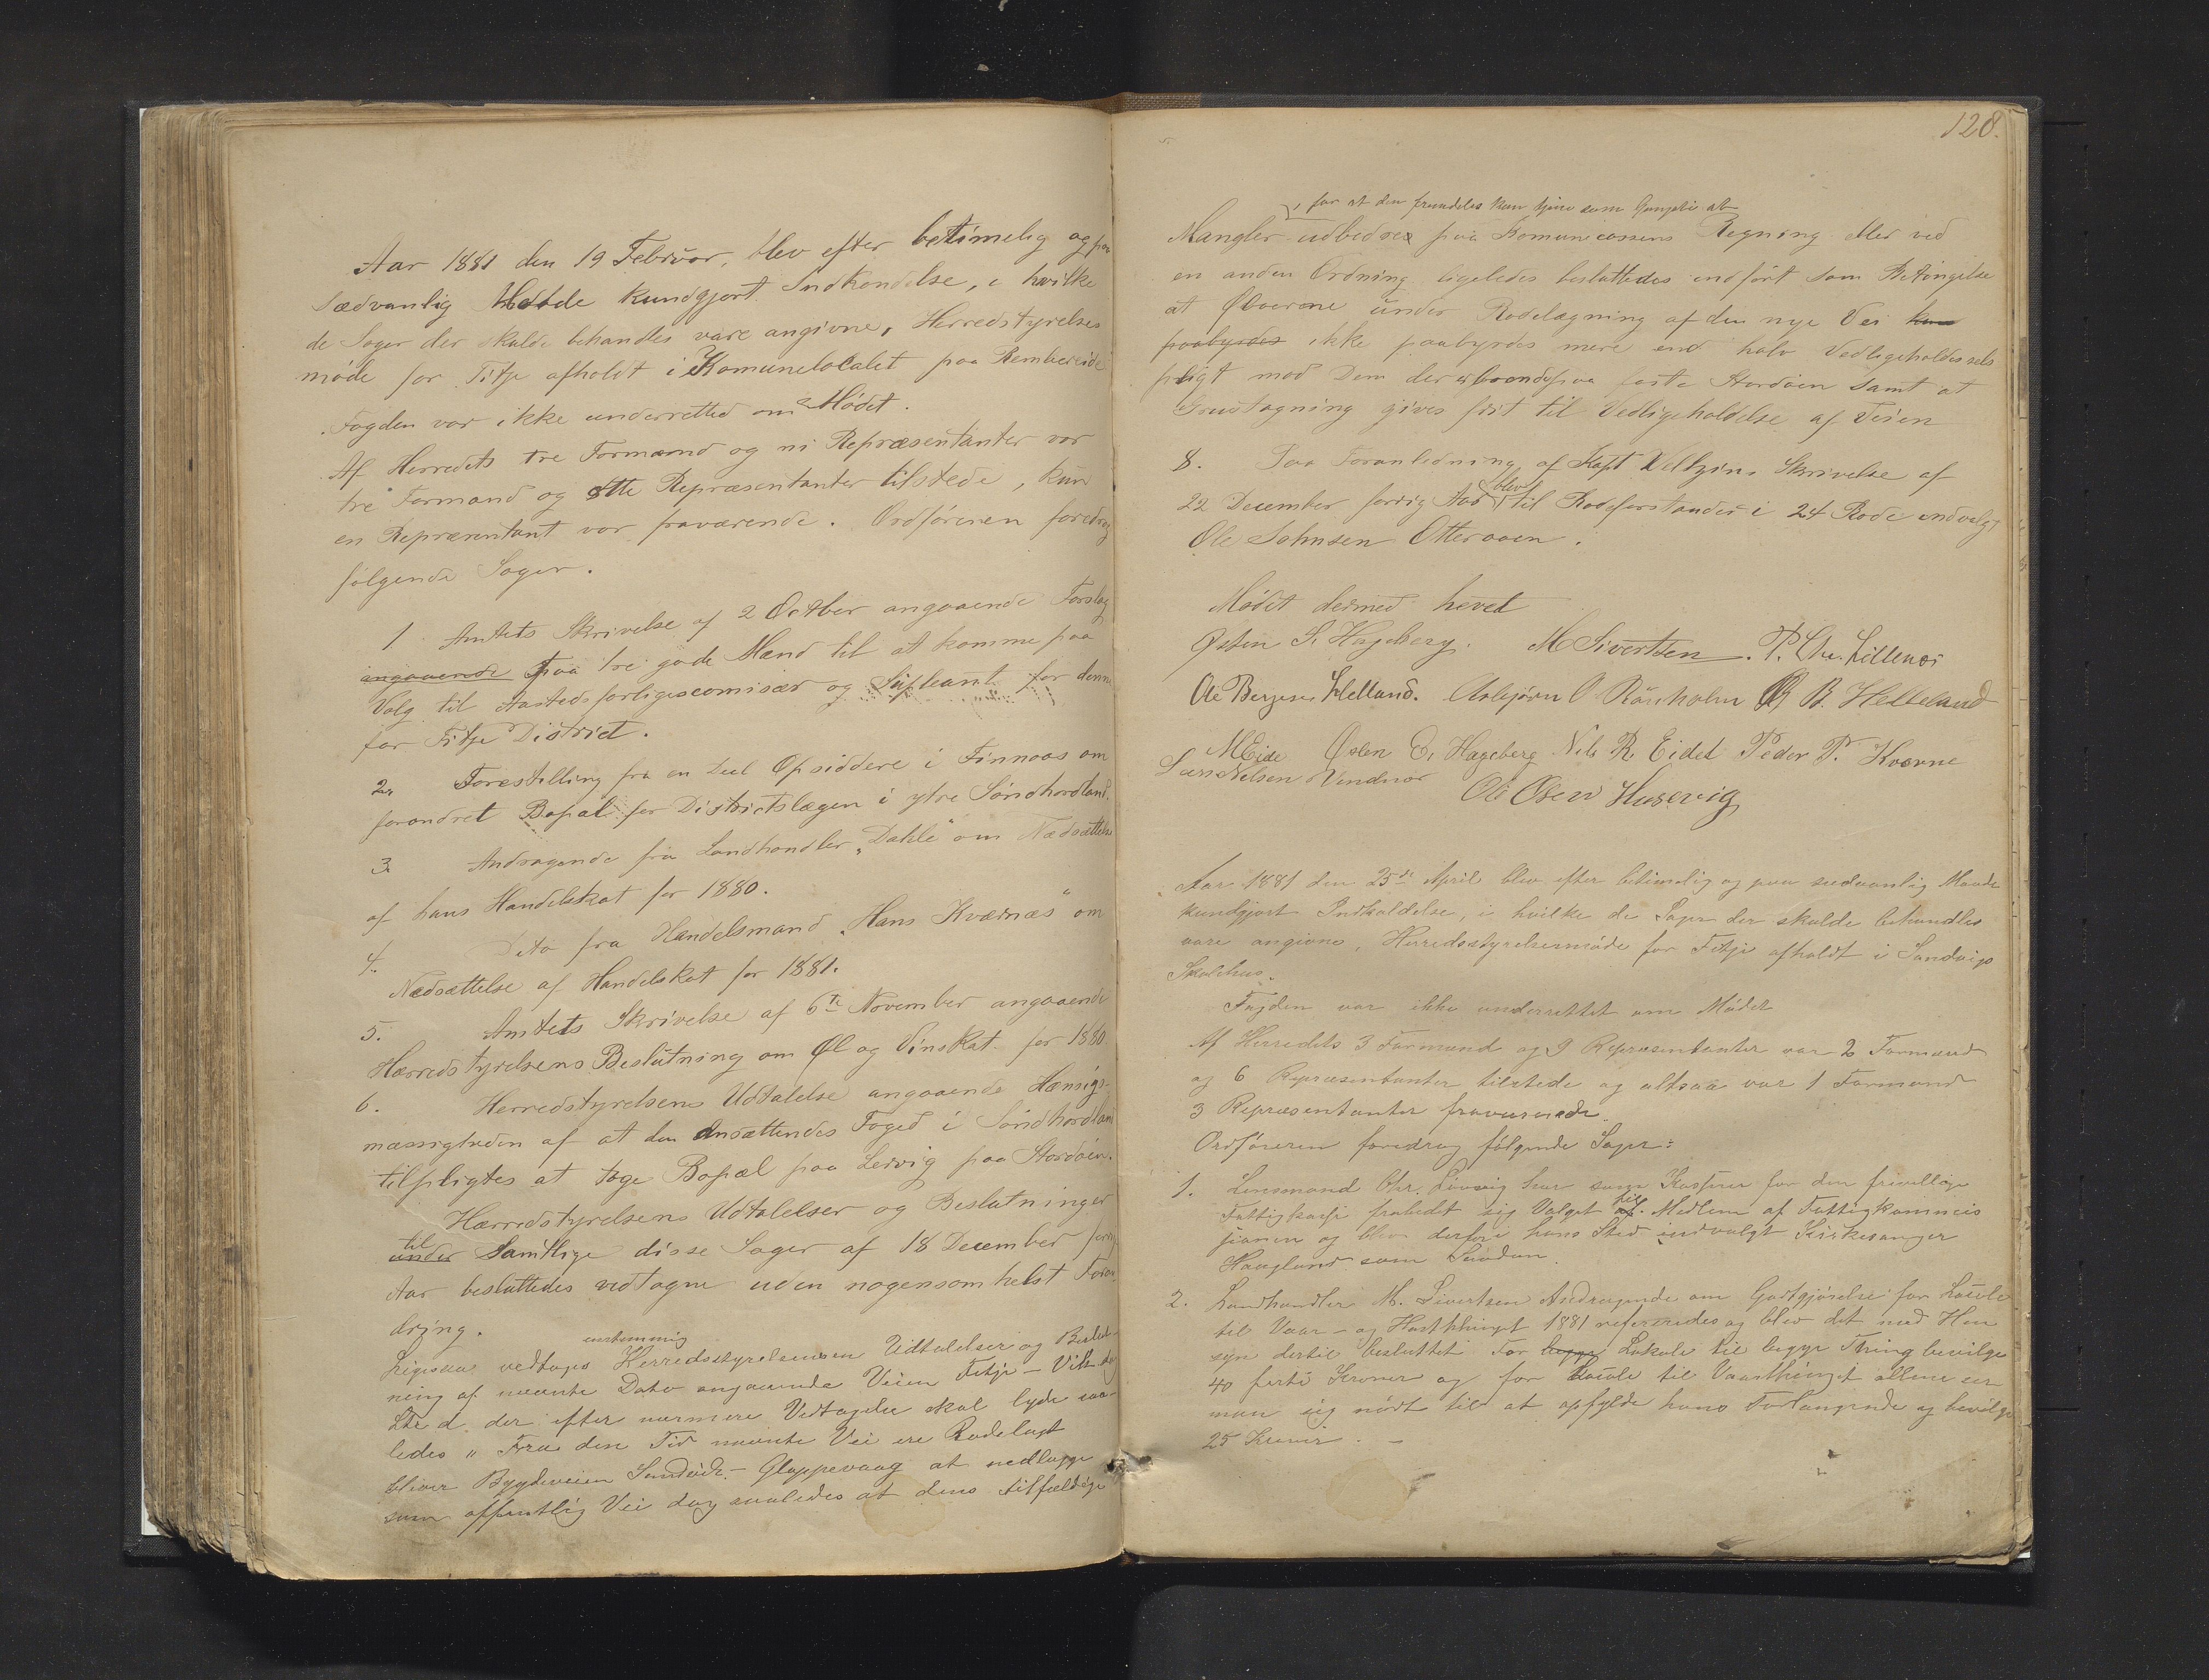 Aar 1881 den 19 Februar, blev efter betimelig og paa
sædvanlig Maade kundgjort Indkendelse, i hvilke
de Sager der skulde behandles vare angivne, Herredstyrelses
møde for Fitje afholdt i Komunelocalet paa Rembereide
Fogden var ikke underretted om Mødet.
Af Herredets tre Formænd og ni Repræsentanter var
tre Formænd og otte Repræsentanter tilstede, kun
en Repræsentant var fraværende. Ordføreren foredrog
følgende Sager.
1. Amtets Skrivelse af 2 Octber angaaende Forslag
angaaende paa tre gode Mænd til at komme paa
Valg til Aastedsforligescomisær og Supleant for denne
for Fitje District.
2. Forestilling fra en Deel Opsiddere i Finnaas om
forandret Bopæl for Districtslægen i ytre Søndhordland.
3. Andragende fra Landhandler "Dahle" om Nedsættelse
af hans Handelskat for 1880.
4. Dito fra Handelsmand "Hans Kværnæs" om
Nedsættelse af Handelskat for 1881.
5. Amtets Skrivelse af 6te November angaaende
Hærredstyrelsens Beslutning om Øl og Vinskat for 1880
6. Herredstyrelsens Udtalelse angaaende Hænsigs-
mæssigheden af at den ansættendes Foged i Søndhordland
tilpligtes at tage Bopæl paa Lervig paa Stordøen.
Hærredstyrelsens Udtalelser og Beslutninger
til
under Samtlige disse Sager af 18 December forrig
Aar besluttedes vedtagne uden nogensomhelst Foran
dring.
enstemmig
Ligesaa vedtages Herredsstyrelsens Udtalelser og Beslut-
ning af nævnte Dato angaaende Veien Fitje - Vik
Ltr d. der efter nærmere Vedtagelse skal lyde saa-
ledes " Fra den Tid nævnte Vei er Rodelagt
bliver Bygdeveien Sandvik - Gloppevaag at nedlægge
som offentlig Vei dog saaledes at dens tilfældige
128.
, for at den fremdeles kan tjene som
Mangler udbedres paa Komunecassens Regning eller ved
en anden Ordning ligeledes besluttedes indført som Betingelse
at Øboerne under Rodelægning af den nye Vei kun
paabyrdes ikke paabyrdes mere end halv Vedligeholdelses
pligt mod Dem der er boende paa faste Stordøen samt at
Grustagning gives frit til Vedligeholdelse af Veien
8. Paa Foranledning af Kapt Veltzins Skrivelse af
blev
22 December forrig Aar til Rodeforstander i 24 Rode indvalgt
Ole Johnsen Otteraaen.
Mødet dermed hævet
Østen S. Hageberg. M Sivertsen. P. Chr. Lillenes
Ole Bergesen Helland. Asbjørn O Rømholm B. Helleland
M Eide Østen E. Hageberg Nils R. Eidet Peder P. Kværne
Lars Nelsen Vendnes
Ole Osen Husevig
Aar 1881 den 25de April blev efter betimelig og paa sædvanlig Maade
kundgjort Indkaldelse, i hvilke de Sager der skulde behandles
vare angivne, Herredsstyrelsesmøde for Fitje afholdt i Sandvigs
Skolehus.
Fogden var ikke underrettet om Mødet
Af Herredets 3 Formænd og 9 Repræsentanter var 2 Formænd
og 6 Repræsentanter tilstede og altsaa var 1 Formand
3 Repræsentanter fraværende.
Ordføreren foredrog følgende Sager:
1. Lensmand Chr. Lervig har som Kasserer for den frivillige
Fattigkasse frabedt sig Valget til Medlem af Fattigkommis
sionen og blev derfor i hans Sted indvalgt Kirkesanger
Haugland som Saadan.
2. Landhandler M. Sivertsen Andragende om Godtgjørelse for Locale
til Vaar- og Høstthinget 1881 refereredes og blev det med Hen
syn dertil besluttet For begge Lokale til begge Thing bevilge
40 førti Kroner og for Locale til Vaarthinget allene ser
man sig nødt til at opfylde hans Forlangende og bevilge
25 Kroner. -